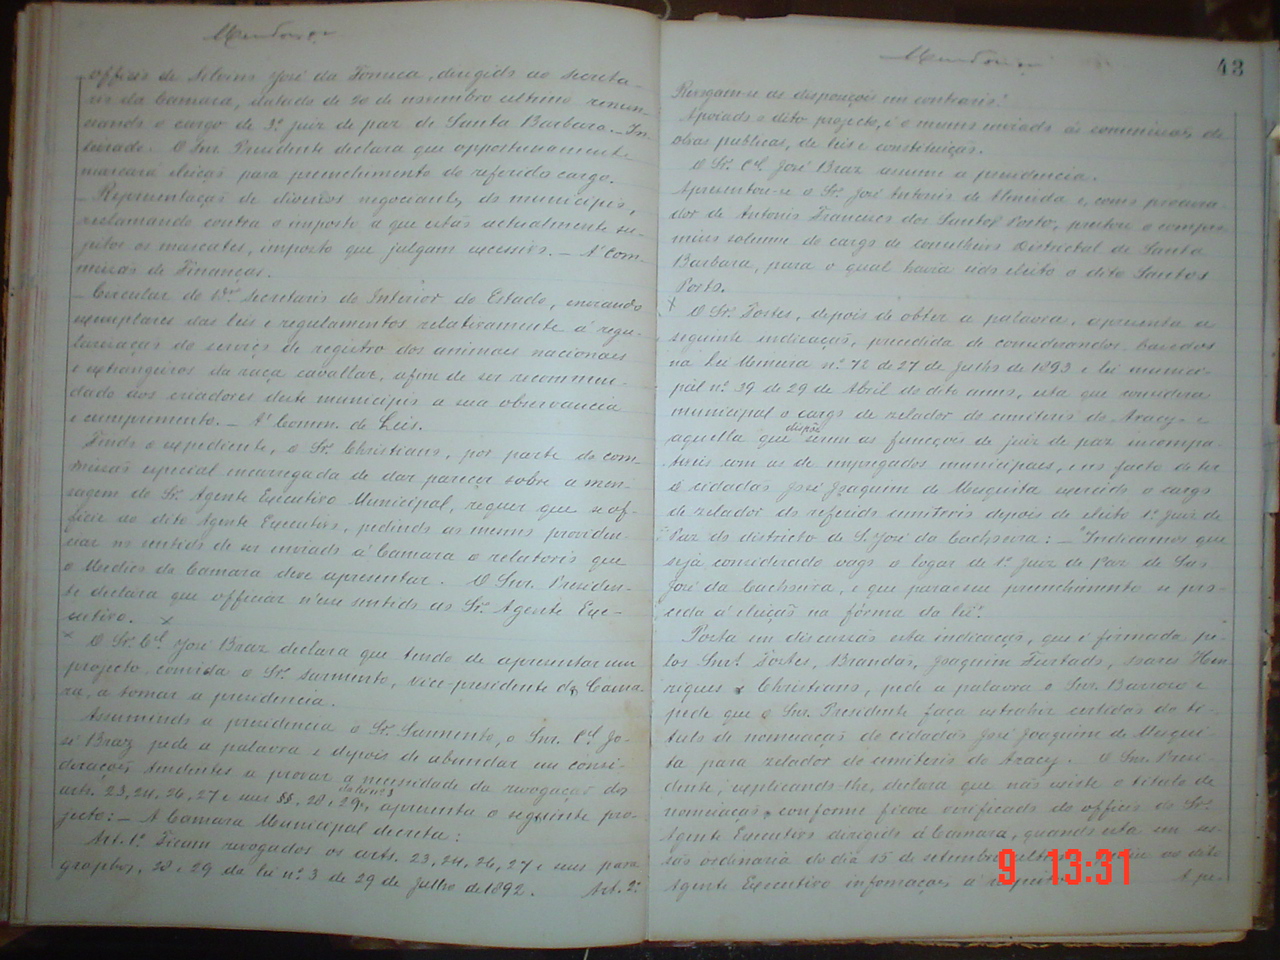 officio de Nelvins José da Fonseca, dirigido ao secreta-
rio da Camara, datado de 20 de novembro ultimo renun-
ciando o cargo de 3º juiz de paz de Santa Barbara. — In-
teirado. O Snr. Presidente declara que opportunamente
marcará eleição para preenchimento do referido cargo.
— Representação de diversos negociantes do municipio,
reclamando contra o imposto a que estão actualmente su-
jeitos os mascates, imposto que julgam excessivo. — Á Com-
missão de Finanças.
— Circular do Dr. Secretario do Interior do Estado, enviando
exemplares das leis e regulamentos relativamente á regu-
larisação do serviço de registro dos animaes nacionaes
e extrangeiros da raça cavallar, afim de ser recommen-
dado aos criadores deste municipio a sua observancia
e cumprimento. — Á Comm. de Leis.
Findo o expediente, o Sr. Christiano, por parte da com-
missão especial encarregada de dar parecer sobre a men-
sagem do Sr. Agente Executivo Municipal, requer que se of-
ficie ao dito Agente Executivo, pedindo ao mesmo providen-
ciar no sentido de ser enviado á Camara o relatorio que
o Medico da Camara deve apresentar. O Snr. Presiden-
te declara que officiar n'esse sentido ao Sr. Agente Exe-
cutivo. x
x O Sr. Cel. José Braz declara que tendo de apresentar um
projecto, convida o Sr. Sarmento, vice-presidente da Cama-
ra, a tomar a presidencia.
Assumindo a presidencia o Sr. Sarmento, o Snr. Cel. Jo-
sé Braz pede a palavra e depois de abundar em consi-
derações tendentes a provar a necessidade da revogação dos
arts. 23, 24, 26, 27 e seus §§, 28 e 29, apresenta o seguinte pro-
jecto: — A Camara Municipal decreta:
Art. 1º Ficam revogados os arts. 23, 24, 26, 27 e seus para
graphos, 28 e 29 da lei nº 3 de 29 de Julho de 1892. Art. 2º
43
Revogam-se as disposições em contrario."
Apoiado o dito projecto, é o mesmo enviado ás commissões de
obras publicas, de leis e constituição.
O Sr. Cel. José Braz assume a presidencia.
Apresentou-se o Sr. José Antonio de Almeida e, como procura-
dor de Antonio Francisco dos Santos Porto, prestou o compro-
misso solemne do cargo de conselheiro Districtal de Santa
Barbara, para o qual havia sido eleito o dito Santos
Porto.
x O Sr. Fortes, depois de obter a palavra, apresenta a
seguinte indicação, precedida de considerandos baseados
na Lei Mineira nº 72 de 27 de Julho de 1893 e lei munici-
pal nº 39 de 29 de Abril do dito anno, esta que considera
municipal o cargo de zelador do cemiterio do Aracy e
aquella que dispõe serem as funcções de juiz de paz incompa-
tiveis com as de empregados municipaes, e no facto de ter
o cidadão José Joaquim de Mesquita exercido o cargo
de zelador do referido cemiterio depois de eleito 1º Juiz de
Paz do districto de S. José da Cachoeira: — "Indicamos que
seja considerado vago o logar de 1º Juiz de Paz de São
José da Cachoeira, e que para esse preenchimento se pro-
ceda á eleição na fórma da lei".
Posta em discussão esta indicação, que é firmada pe-
los Snrs. Fortes, Brandão, Joaquim Furtado, Soares Hen-
riques e Christiano, pede a palavra o Snr. Barroso e
pede que o Snr. Presidente faça extrahir certidão do ti-
tulo de nomeação do cidadão José Joaquim de Mesqui-
ta para zelador do cemiterio do Aracy. O Snr. Presi-
dente, explicando-lhe, declara que não existe o titulo de
nomeação, conforme ficou verificado do officio do Sr.
Agente Executivo dirigido á Camara, quando esta em ses-
são ordinaria do dia 15 de setembro ao dito
Agente Executivo informações á A pe-
9 13:31